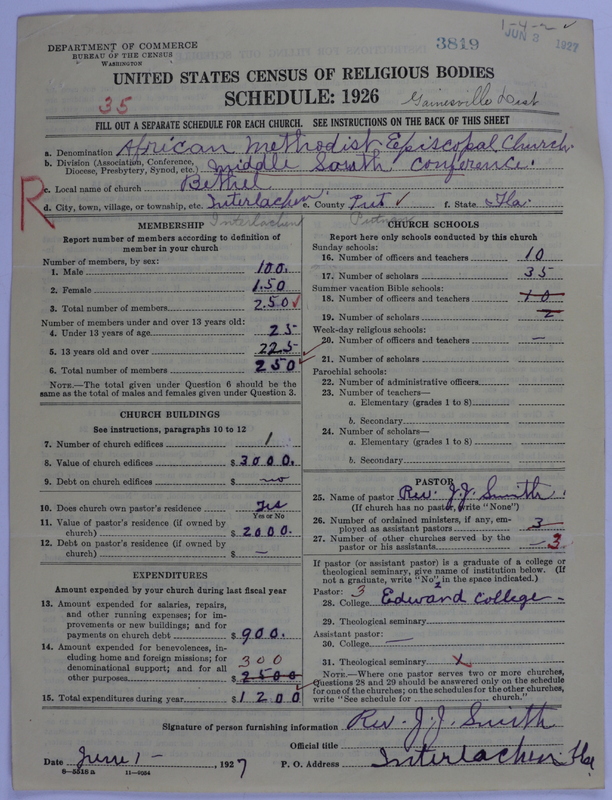 1-4-2 ✓
DEPARTMENT OF COMMERCE
BUREAU OF THE CENSUS
WASHINGTON
3819
JUN 2 1927
UNITED STATES CENSUS OF RELIGIOUS BODIES
SCHEDULE: 1926
35
Gainesville Dist
FILL OUT A SEPARATE SCHEDULE FOR EACH CHURCH. SEE INSTRUCTIONS ON THE BACK OF THIS SHEET
a. Denomination African Methodist Episcopal Church.
b. Division (Association, Conference, Diocese, Presbytery, Synod, etc.) Middle South Conference.
R
c. Local name of church Bethel
d. City, town, village, or township, etc. Interlachen. e. County Put ✓ f. State Fla.
Interlachen Putnam
MEMBERSHIP
Report number of members according to definition of
member in your church
Number of members, by sex:
1. Male 100.
2. Female 150
3. Total number of members 250 ✓
Number of members under and over 13 years old:
4. Under 13 years of age 25
5. 13 years old and over 225
6. Total number of members 250 ✓
NOTE.—The total given under Question 6 should be the
same as the total of males and females given under Question 3.
CHURCH BUILDINGS
See instructions, paragraphs 10 to 12
7. Number of church edifices 1
8. Value of church edifices $3000.
9. Debt on church edifices $ no
10. Does church own pastor's residence Yes
Yes or No
11. Value of pastor's residence (if owned by
church) $2000.
12. Debt on pastor's residence (if owned by
church) $ —
EXPENDITURES
Amount expended by your church during last fiscal year
13. Amount expended for salaries, repairs,
and other running expenses; for im-
provements or new buildings; and for
payments on church debt $900.
14. Amount expended for benevolences, in-
cluding home and foreign missions; for 300
denominational support; and for all
other purposes $2500
15. Total expenditures during year $1200
CHURCH SCHOOLS
Report here only schools conducted by this church
Sunday schools:
16. Number of officers and teachers 10
17. Number of scholars 35
Summer vacation Bible schools:
18. Number of officers and teachers 10
19. Number of scholars 2
Week-day religious schools:
20. Number of officers and teachers —
21. Number of scholars
Parochial schools:
22. Number of administrative officers
23. Number of teachers—
a. Elementary (grades 1 to 8)
b. Secondary
24. Number of scholars—
a. Elementary (grades 1 to 8)
b. Secondary
PASTOR
25. Name of pastor Rev. J.J. Smith.
(If church has no pastor, write "None")
26. Number of ordained ministers, if any, em-
ployed as assistant pastors 3
27. Number of other churches served by the
pastor or his assistants — 3
If pastor (or assistant pastor) is a graduate of a college or
theological seminary, give name of institution below. (If
not a graduate, write "No" in the space indicated.)
Pastor: 3
28. College Edward College -
29. Theological seminary
Assistant pastor:
30. College —
31. Theological seminary x
NOTE.—Where one pastor serves two or more churches,
Questions 28 and 29 should be answered only on the schedule
for one of the churches; on the schedules for the other churches,
write "See schedule for ............ church."
Signature of person furnishing information Rev. J.J. Smith
Official title
Date June 1 - , 1927 P. O. Address Interlachen Fla
8—5516 a 11—9034